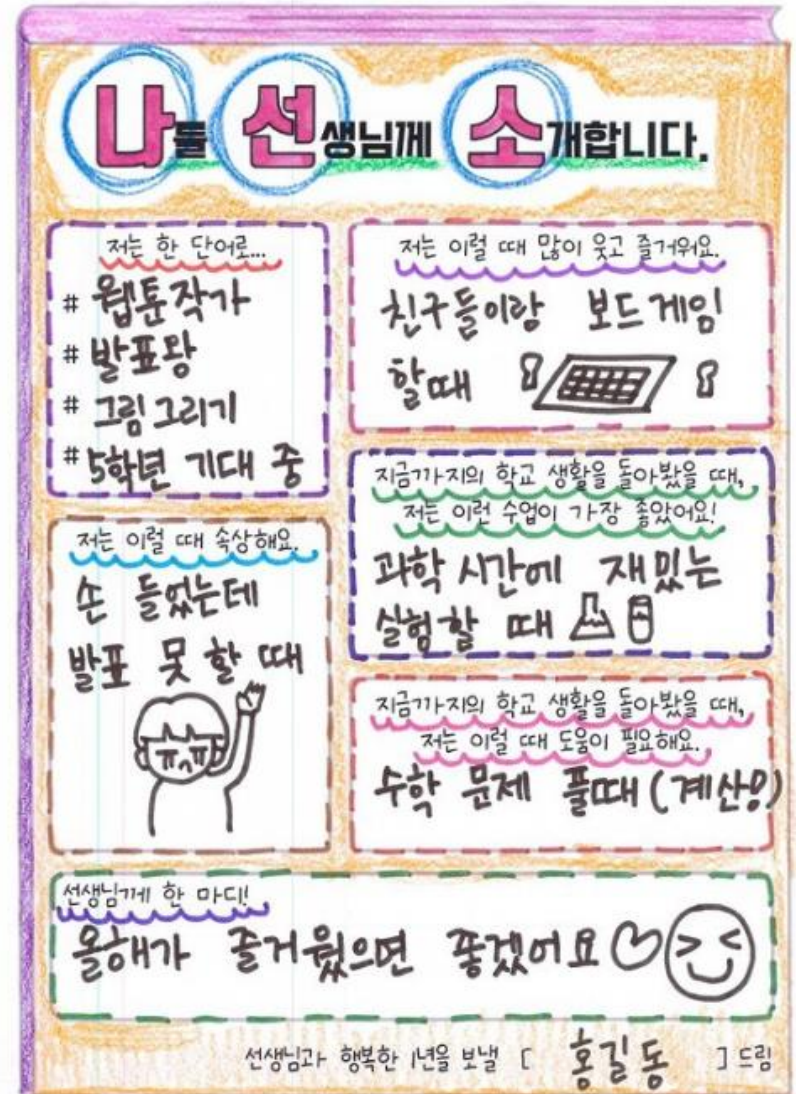 나를 선생님께 소개합니다.
저는 한 단어로...
# 웹툰작가
# 발표왕
# 그림그리기
# 5학년 기대 중
저는 이럴 때 많이 웃고 즐거워요.
친구들이랑 보드게임
할때
지금까지의 학교 생활을 돌아봤을 때,
저는 이런 수업이 가장 좋았어요!
과학 시간에 재밌는
실험할 때
저는 이럴 때 속상해요.
손 들었는데
발표 못 할 때
지금까지의 학교 생활을 돌아봤을 때,
저는 이럴 때 도움이 필요해요.
수학 문제 풀때 (계산용)
선생님께 한 마디!
올해가 즐거웠으면 좋겠어요
선생님과 행복한 1년을 보낼 [ 홍길동 ] 드림